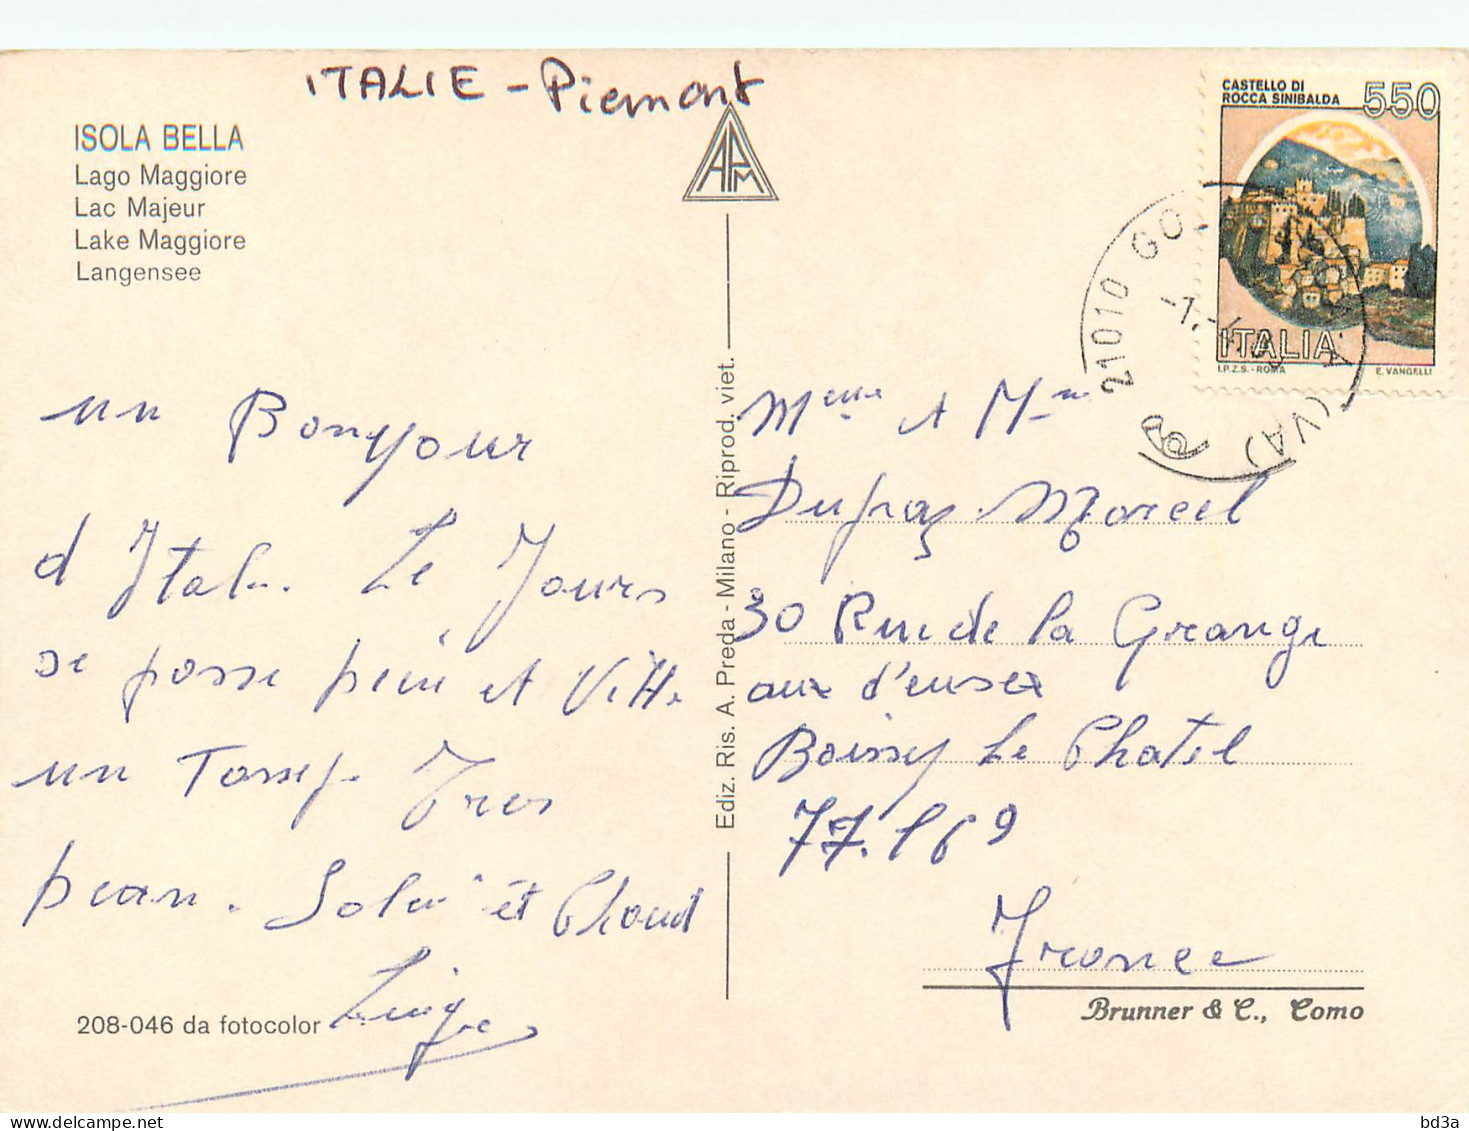 ITALIE - Piemont
ISOLA BELLA
Lago Maggiore
Lac Majeur
Lake Maggiore
Langensee
APM
CASTELLO DI
ROCCA SINIBALDA
550
ITALIA
I.P.Z.S. - ROMA
E. VANGELLI
21010 GO
(VA)
un Bonjour
d Ital. Le Jours
se passe et Vitte
un Tres
et Chaud
Luigi
208-046 da fotocolor
Ediz. Ris. A. Preda - Milano - Riprod. viet.
Dupraz Marcel
30 Rue de la Grange
aux d'
Boissy Le Chatel
77.169
France
Brunner & C., Como
delcampe.net
bd3a